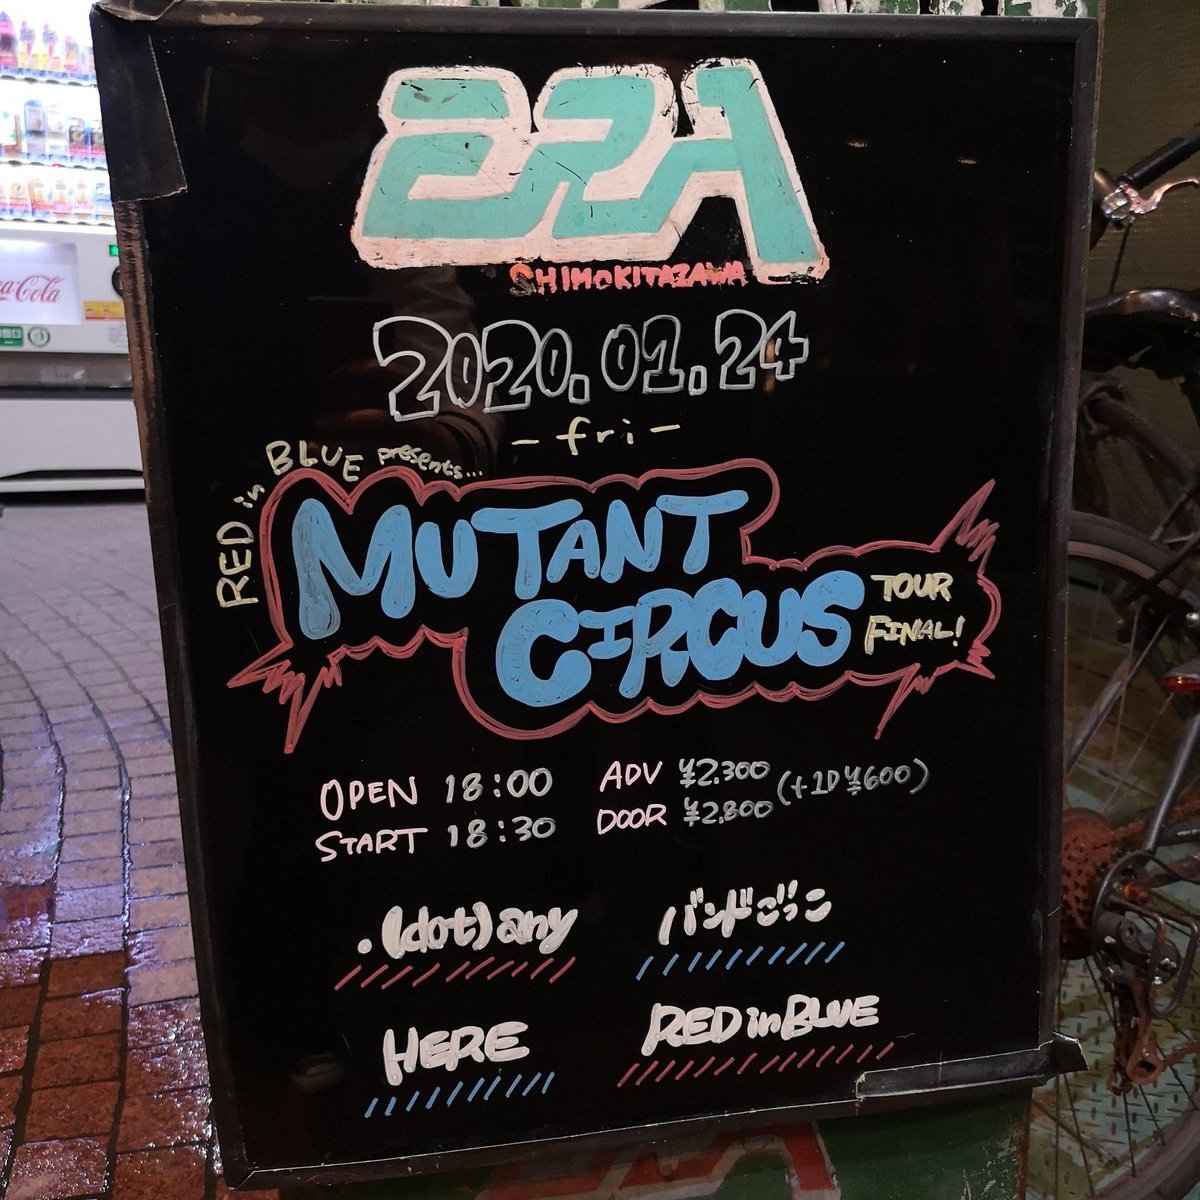 ERA
SHIMOKITAZAWA
2020.01.24
-fri-
RED in BLUE presents...
MUTANT
CIRCUS
TOUR
FINAL!
OPEN 18:00 ADV ¥2,300 (+1D ¥600)
START 18:30 DOOR ¥2,800
.(dot)any バンドごっこ
HERE RED in BLUE
Cola